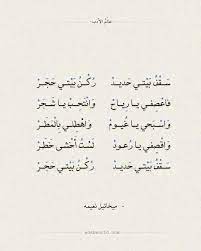 عالم الأدب
سَقْفُ بَيْتي حَديد رُكْنُ بَيْتي حَجَرْ
فَاعْصِفي يا رِياح وَانْتَحِبْ يا شَجَرْ
وَاسْبَحي يا غُيومْ وَاهْطِلي بِالْمَطَرْ
وَاقْصِفي يا رُعودْ لَسْتُ أَخْشى خَطَرْ
سَقْفُ بَيْتي حَديدْ رُكْنُ بَيْتي حَجَرْ
ميخائيل نعيمه